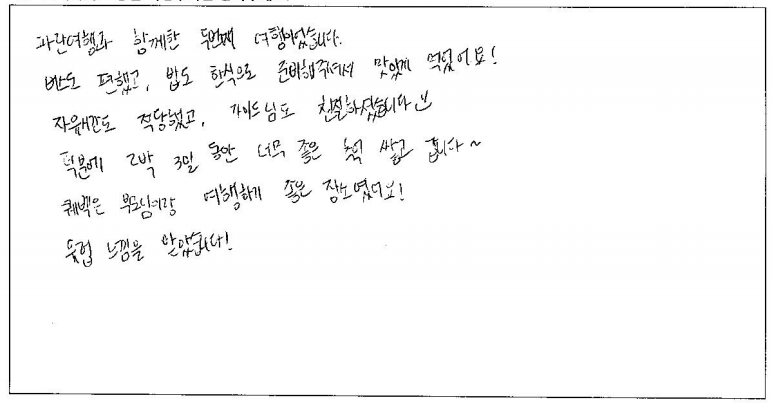 파란여행과 함께한 두번째 여행이었습니다.
버스도 편했고, 밥도 한식으로 준비해주셔서 맛있게 먹었어요!
자유시간도 적당했고, 가이드님도 친절하셨습니다
덕분에 2박 3일 동안 너무 좋은 추억 쌓고 갑니다~
퀘벡은 부모님이랑 여행하기 좋은 장소였어요!
유럽 느낌을 받았습니다!